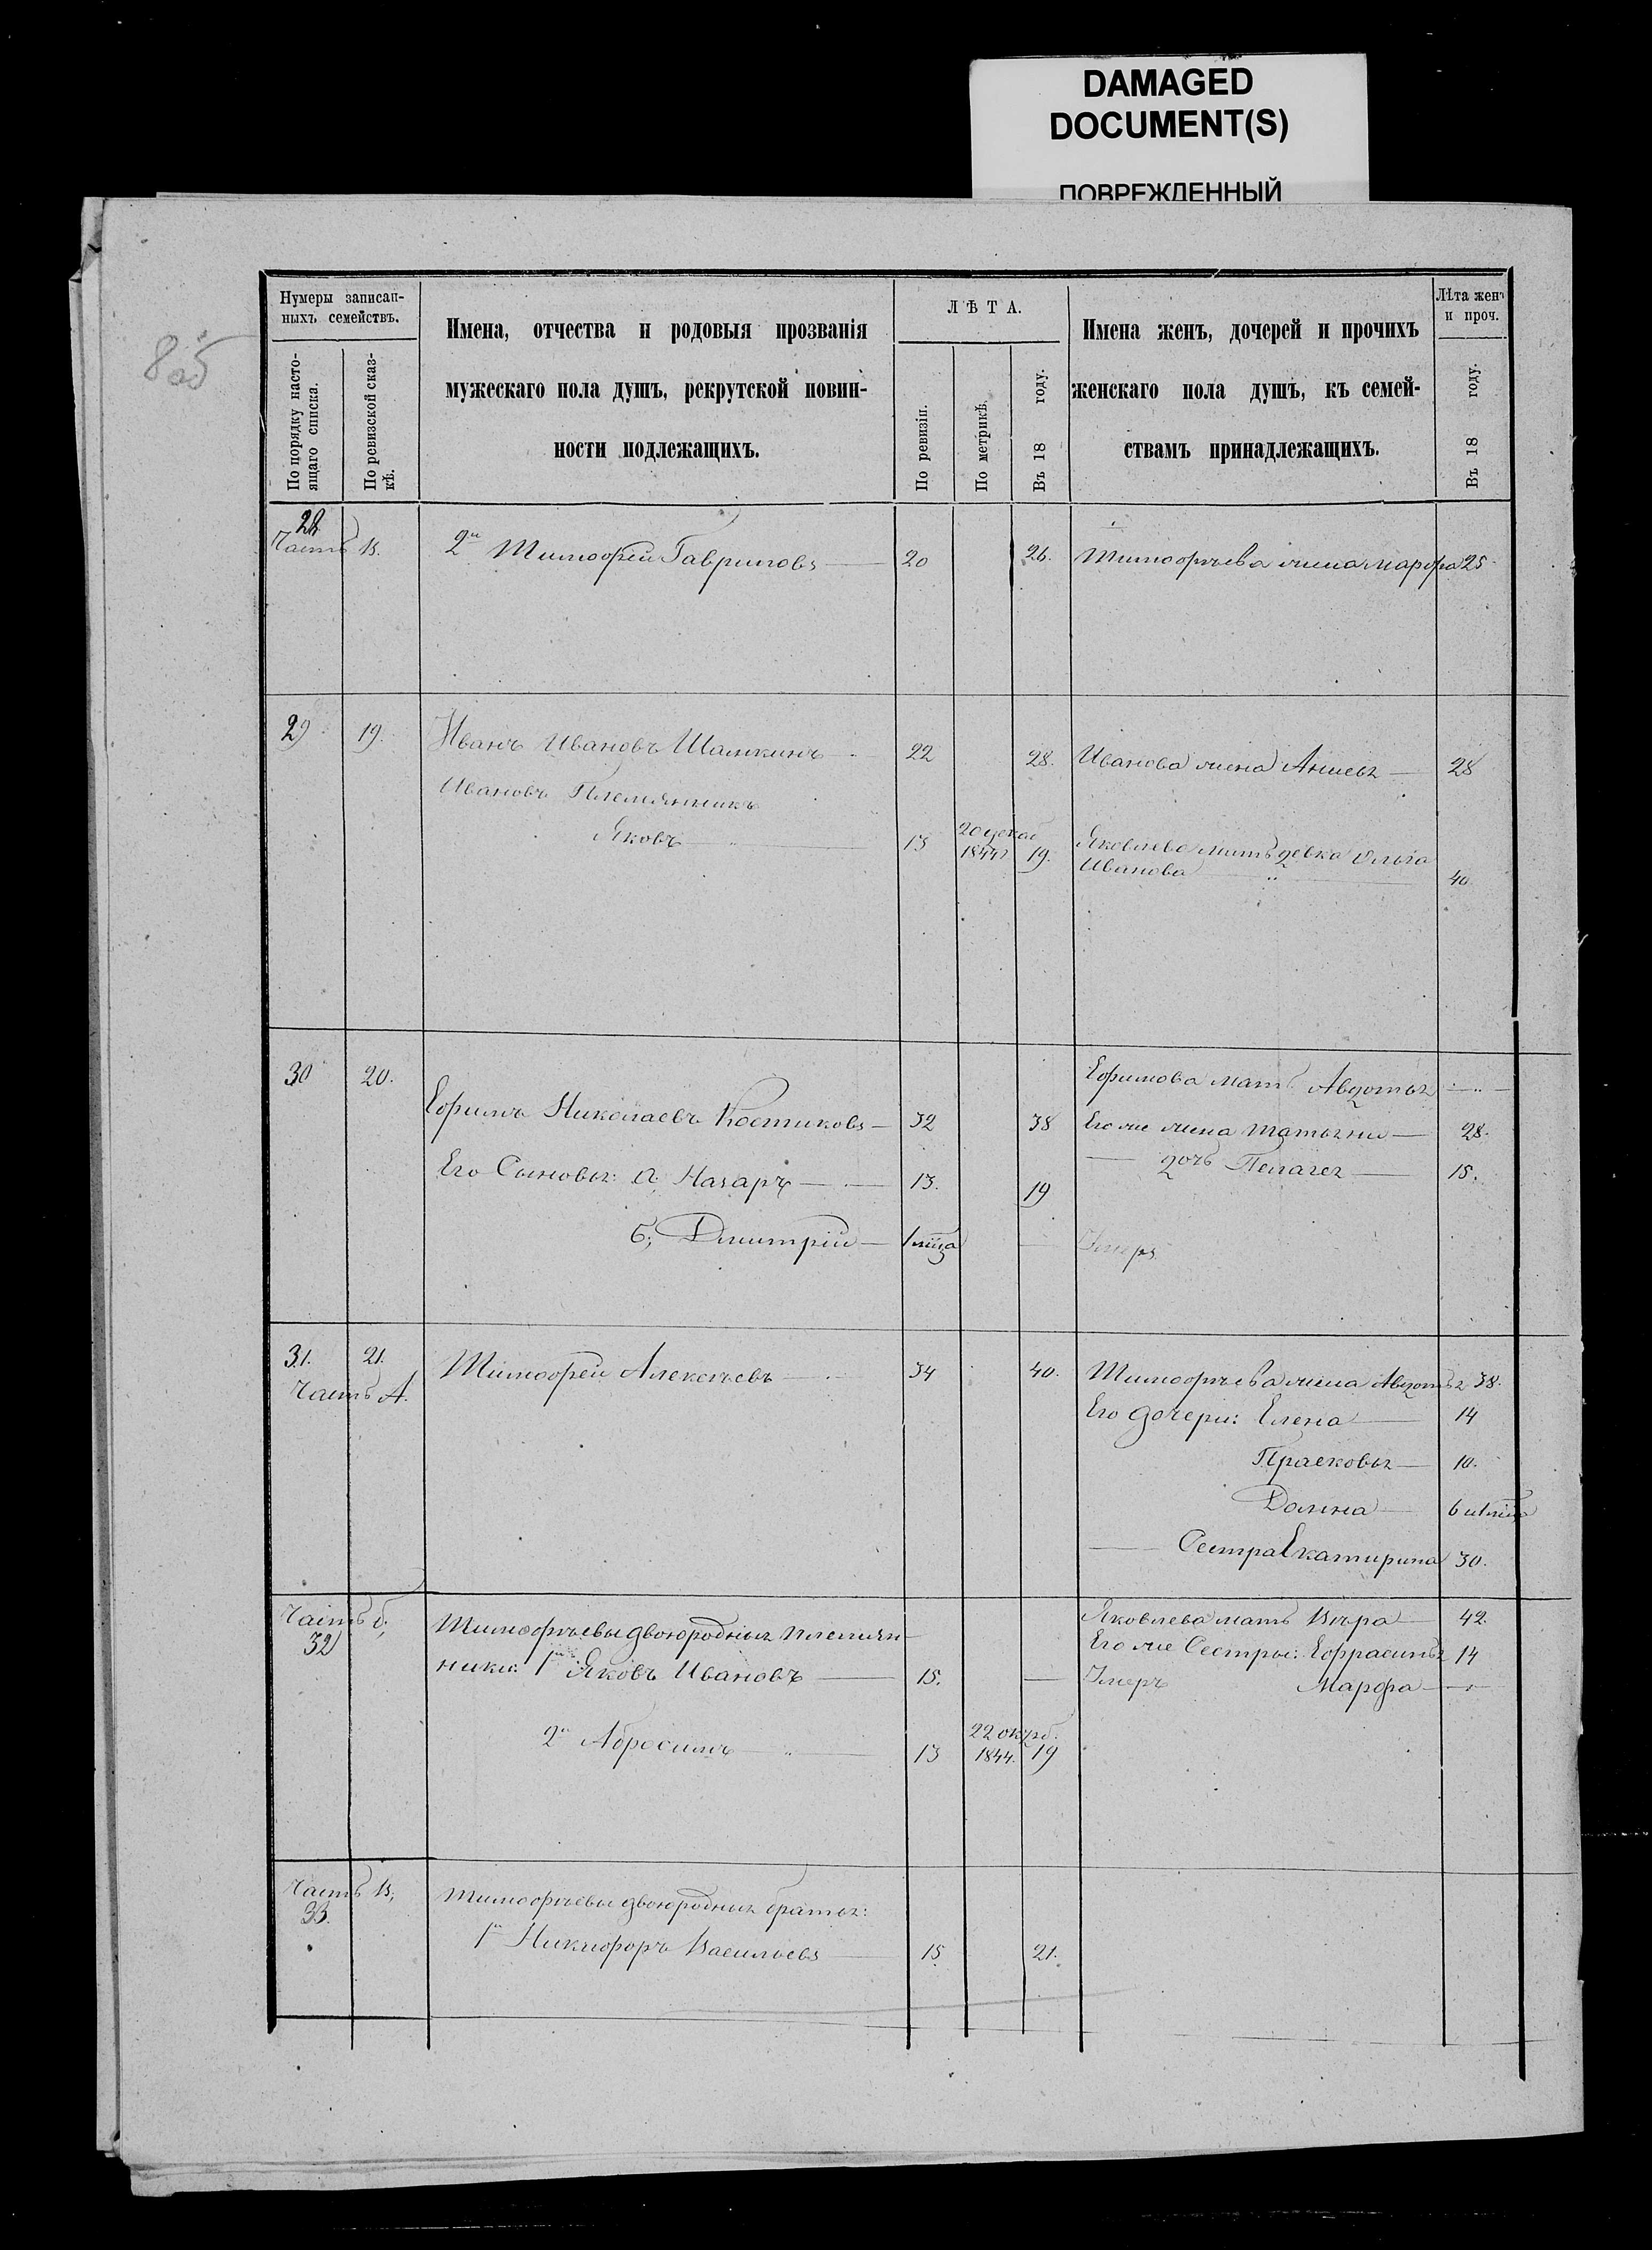 DAMAGED
DOCUMENT(S)
ПОВРЕЖДЕННЫЙ
8 об
Нумеры записан-
ныхъ семействъ.
По порядку насто-
ящаго списка.
По ревизской сказ-
кѣ.
Имена, отчества и родовыя прозванія
мужескаго пола душъ, рекрутской повин-
ности подлежащихъ.
ЛѢТА.
По ревизіи.
По метрикѣ.
Въ 18 году.
Имена женъ, дочерей и прочихъ
женскаго пола душъ, къ семей-
ствамъ принадлежащихъ.
Лѣта женъ
и проч.
Въ 18 году.
28
Часть В. 2й Тимофей Гавриловъ 20 26. Тимофѣева жена Марфа 25
29 19. Иванъ Ивановъ 22 28. Иванова жена 28
Ивановъ Племянникъ
Яковъ 13 20 декаб 1844 19. Яковлева мать девка Ольга
Иванова 40.
30 20. Ефимова мать Авдотья
Ефимъ Николаевъ Костиковъ 32 38 Его же жена Татьяна 28.
дочь Пелагея 15.
Его Сыновья: а, Назаръ 13. 19
б; Дмитрій 1 мца Умеръ
31. 21. Тимофей Алексѣевъ 34 40. Тимофѣева жена Авдотья 38.
Часть А.
Его дочери: Елена 14
Прасковья 10.
Домна 6
Сестра Екатирина 30.
Часть б; Яковлева мать Вѣра 42.
32 Тимофѣевы двоюродныя племян Его же Сестры: Ефрасинья 14
ники: 1й Яковъ Ивановъ 15. Умеръ Марфа
2й Абросимъ 13 22 октб. 1844. 19
Часть В; Тимофѣевы двоюродныя братья:
33.
1й Никифоръ Васильевъ 15 21.